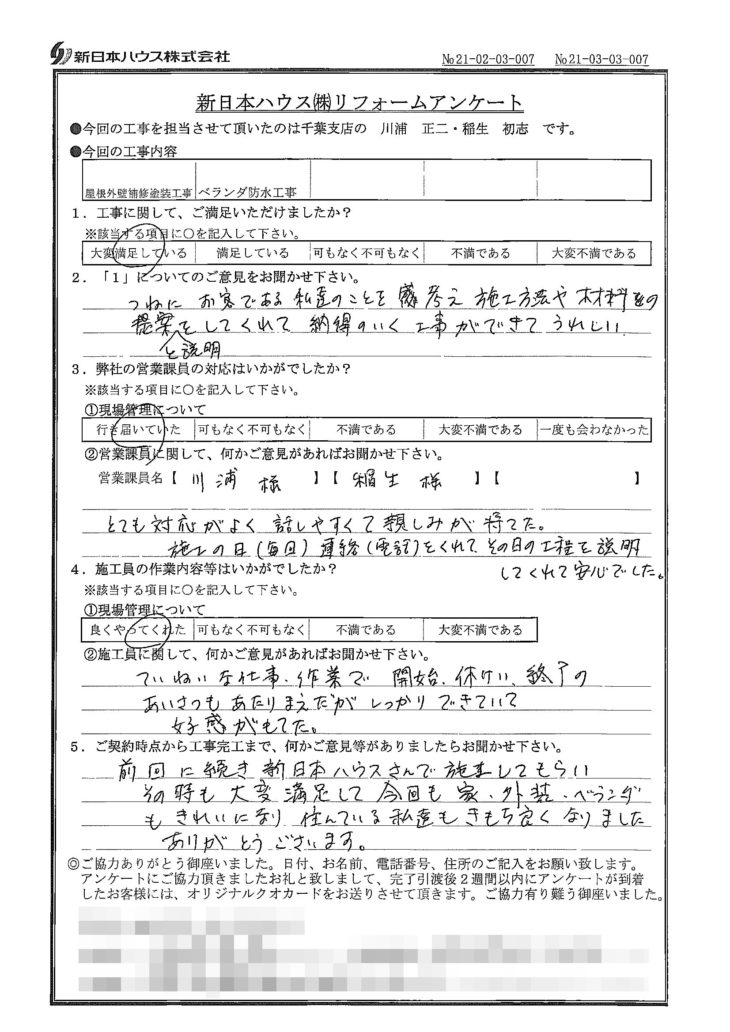 新日本ハウス株式会社
№21-02-03-007 №21-03-03-007
新日本ハウス㈱リフォームアンケート
●今回の工事を担当させて頂いたのは千葉支店の 川浦 正二・稲生 初志 です。
●今回の工事内容
屋根外壁補修塗装工事 ベランダ防水工事
1．工事に関して、ご満足いただけましたか？
※該当する項目に○を記入して下さい。
大変満足している 満足している 可もなく不可もなく 不満である 大変不満である
2．「1」についてのご意見をお聞かせ下さい。
つねに お客である 私達のことを 考え 施工方法や 材料
提案をしてくれて 納得のいく 工事ができて うれしい
と説明
3．弊社の営業課員の対応はいかがでしたか？
※該当する項目に○を記入して下さい。
①現場管理について
行き届いていた 可もなく不可もなく 不満である 大変不満である 一度も会わなかった
②営業課員に関して、何かご意見があればお聞かせ下さい。
営業課員名【 川浦 様 】【 稲生 様 】【 】
とても対応がよく 話しやすくて 親しみが 持てた。
施工の日(毎回) 連絡(電話)をくれて その日の工程を説明
してくれて 安心でした。
4．施工員の作業内容等はいかがでしたか？
※該当する項目に○を記入して下さい。
①現場管理について
良くやってくれた 可もなく不可もなく 不満である 大変不満である
②施工員に関して、何かご意見があればお聞かせ下さい。
ていねいな仕事・作業で 開始、休けい、終了の
あいさつも あたりまえだが しっかり できていて
好感がもてた。
5．ご契約時点から工事完工まで、何かご意見等がありましたらお聞かせ下さい。
前回に続き 新日本ハウスさんで 施工してもらい
その時も 大変 満足して 今回も 家・外装・ベランダ
も きれいになり 住んでいる 私達も きもち良く なりました
ありがとうございます。
◎ご協力ありがとう御座いました。日付、お名前、電話番号、住所のご記入をお願い致します。
アンケートにご協力頂きましたお礼と致しまして、完了引渡後2週間以内にアンケートが到着
したお客様には、オリジナルクオカードをお送りさせて頂きます。ご協力有り難う御座いました。